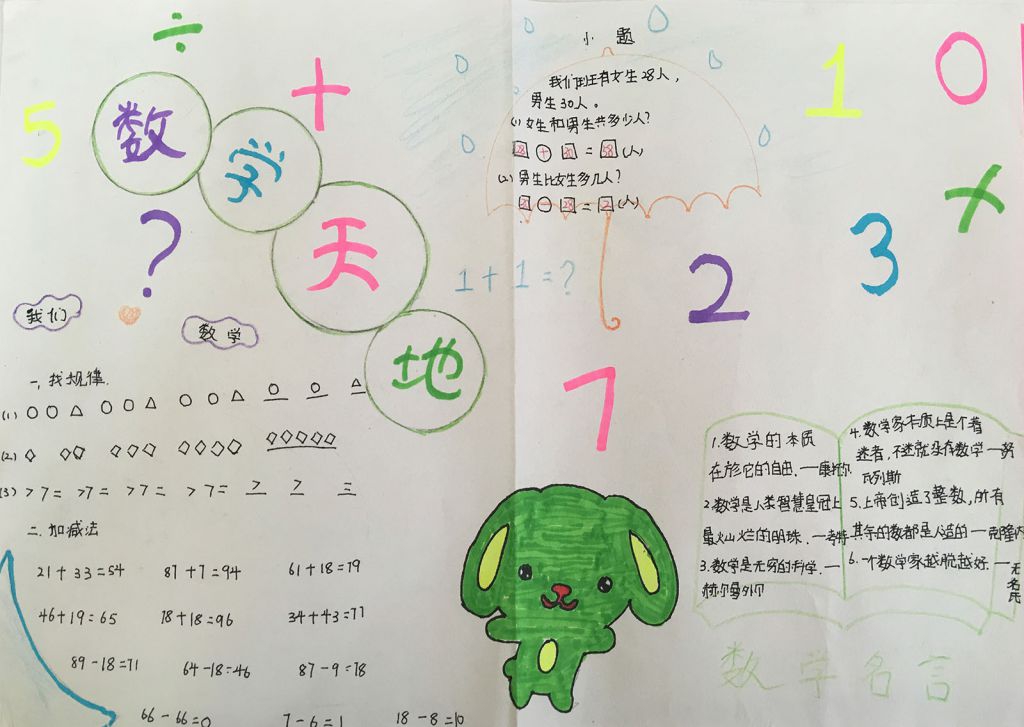 ÷
5
+
数学天地
?
我们
数学
一、找规律.
(1) ○ ○ △ ○ ○ △ ○ ○ ○ ○ ○ △
(2) ◇ ◇◇ ◇◇◇ ◇◇◇◇ ◇◇◇◇◇
(3) > 7 = > 7 = > 7 = > 7 = > > =
二.加减法
21+33=54 87+7=94 61+18=79
46+19=65 78+18=96 34+43=77
89-18=71 64-18=46 87-9=78
66-66=0 7-6=1 18-8=10
小题
我们班有女生28人,
男生30人。
(1) 女生和男生共多少人?
28 + 30 = 58 (人)
(2) 男生比女生多几人?
- 28 = 2 (人)
1+1=?
1
0
×
2
3
7
1.数学的本质
在於它的自由.一康托尔
2.数学是人类智慧皇冠上
最灿烂的明珠.一考特
3.数学是无穷的科学.一
赫尔曼外尔
4.数学家本质上是个着
迷者,不迷就没有数学一努
瓦列斯
5.上帝创造了整数,所有
其余的数都是人造的一克隆内
6.一个数学家越脱越好.一无名氏
数学名言